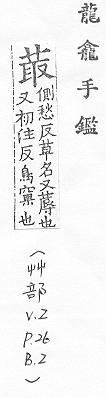 龍龕手鑑
菆
側愁反草名又蓐也
又初注反鳥窠也
(艸部
V.2
P.26
B.2)